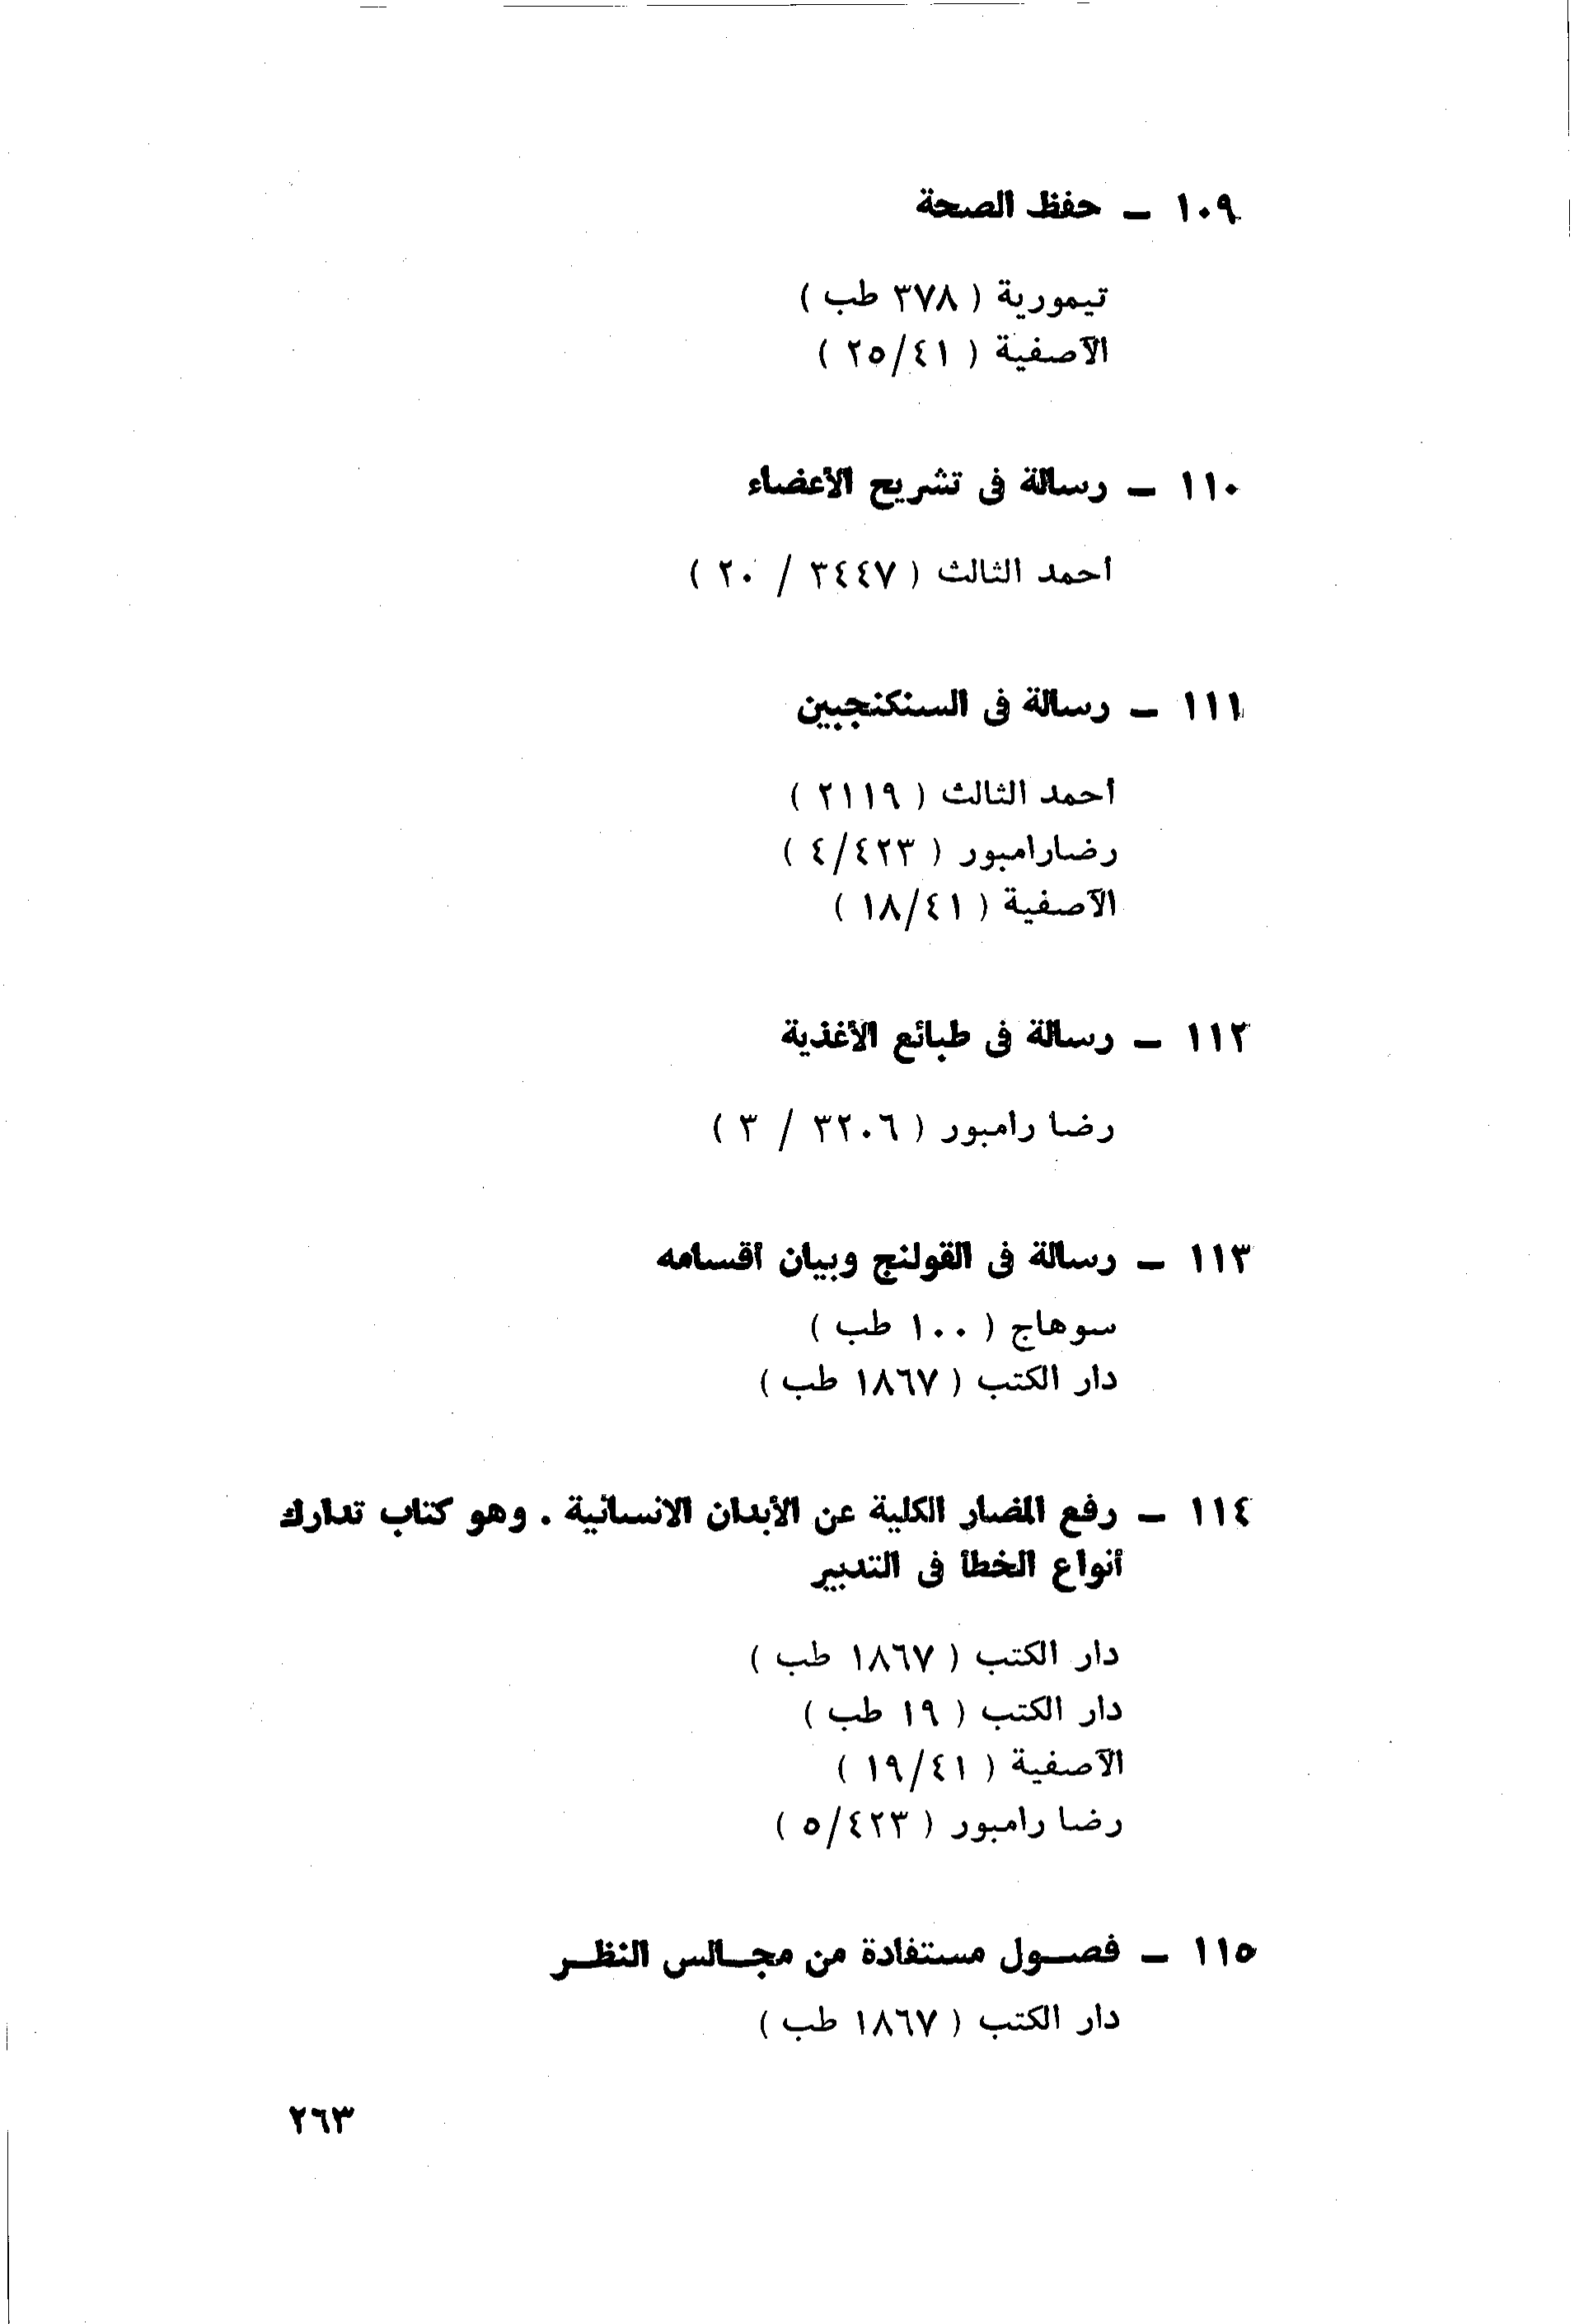 ١٠٩ – حفظ الصحة
تيمورية ( ٣٧٨ طب )
الآصفية ( ٢٥/٤١ )
١١٠ – رسالة فى تشريح الأعضاء
أحمد الثالث ( ٣٤٤٧ / ٢٠ )
١١١ – رسالة فى السنكنجبين
أحمد الثالث ( ٢١١٩ )
رضارامبور ( ٤/٤٢٣ )
الآصفية ( ١٨/٤١ )
١١٢ – رسالة فى طبائع الأغذية
رضا رامبور ( ٣٢٠٦ / ٣ )
١١٣ – رسالة فى القولنج وبيان أقسامه
سوهاج ( ١٠٠ طب )
دار الكتب ( ١٨٦٧ طب )
١١٤ – رفع المضار الكلية عن الأبدان الانسانية . وهو كتاب تدارك
أنواع الخطأ فى التدبير
دار الكتب ( ١٨٦٧ طب )
دار الكتب ( ١٩ طب )
الآصفية ( ١٩/٤١ )
رضا رامبور ( ٥/٤٢٣ )
١١٥ – فصــول مستفادة من مجــالس النظــر
دار الكتب ( ١٨٦٧ طب )
٢٦٣